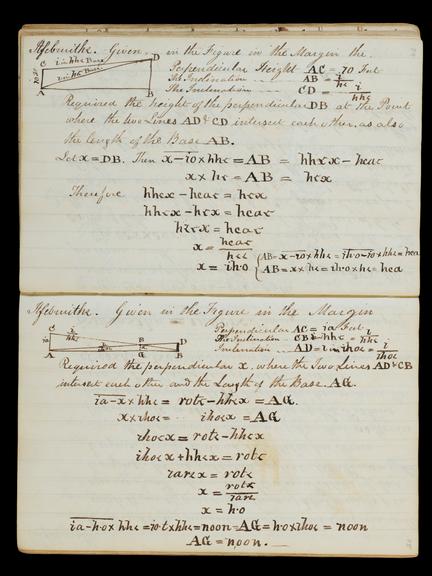 Given, in the Figure in the Margin the
Perpendicular Height AC = 70 Feet
The Inclination AB = i/hc
The Inclination CD = i/hhc
C D
A B
Required the height of the perpendicular DB at the Point
where the two Lines AD & CD intersect each other, as also
the length of the Base AB.
Let x = DB. Then x-io × hhc = AB = hhcx - heac
x × hc = AB = hcx
Therefore hhcx - heac = hcx
hhcx - hcx = heac
x = heac
x = ih·o
Given in the Figure in the Margin
Perpendicular AC = ia Feet
The Inclination CB = hhc = i/hhc
Inclination AD = ihoc = i/ihoc
C D
A B
G
Required the perpendicular x, where the Two Lines AD & CB
intersect each other and the Length of the Base AG.
ia-x × hhc = rotc - hhcx = AG.
x × ihoc = ihocx = AG
ihocx = rotc - hhcx
ihocx + hhcx = rotc
rarcx = rotc
x = rotc/rarc
x = h·o
ia-h·o × hhc = io·t × hhc = noon = AG = h·o × ihoc = noon
AG = noon.